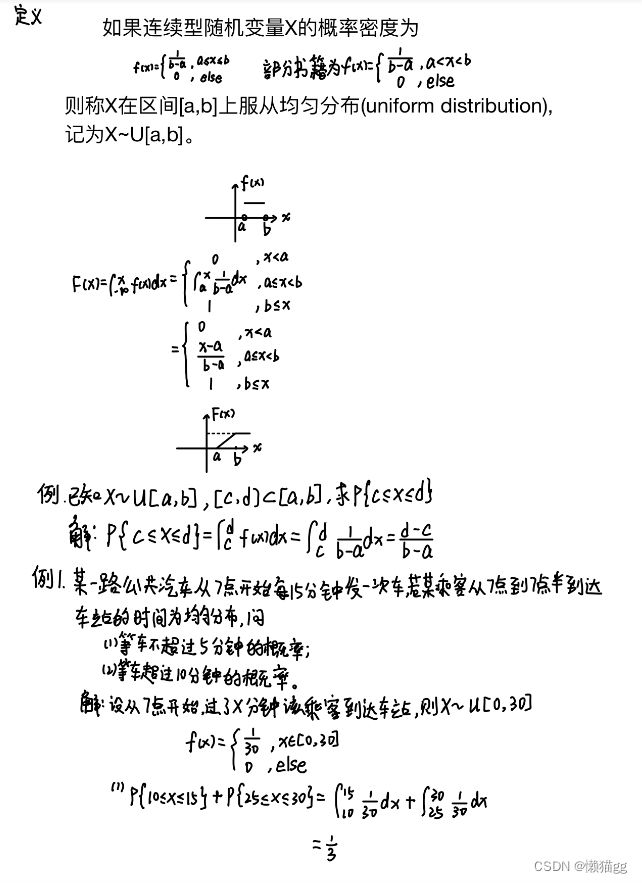 定义
如果连续型随机变量X的概率密度为
f(x)={1/(b-a), a≤x≤b; 0, else 部分书籍为f(x)={1/(b-a), a<x<b; 0, else
则称X在区间[a,b]上服从均匀分布(uniform distribution),
记为X~U[a,b]。
f(x)
a b x
F(x)=∫_{-∞}^{x} f(x)dx={0, x<a; ∫_a^x 1/(b-a) dx, a≤x<b; 1, b≤x
={0, x<a; (x-a)/(b-a), a≤x<b; 1, b≤x
F(x)
a b x
例.已知X~U[a,b],[c,d]⊂[a,b],求P{c≤x≤d}
解:P{c≤x≤d}=∫_c^d f(x)dx=∫_c^d 1/(b-a) dx=(d-c)/(b-a)
例1.某一路公共汽车从7点开始每15分钟发一次车,若某乘客从7点到7点半到达
车站的时间为均匀分布,问
(1)等车不超过5分钟的概率;
(2)等车超过10分钟的概率。
解:设从7点开始,过了X分钟该乘客到达车站,则X~U[0,30]
f(x)={1/30, x∈[0,30]; 0, else
(1)P{10≤x≤15}+P{25≤x≤30}=∫_{10}^{15} 1/30 dx+∫_{25}^{30} 1/30 dx
=1/3
CSDN @懒猫gg